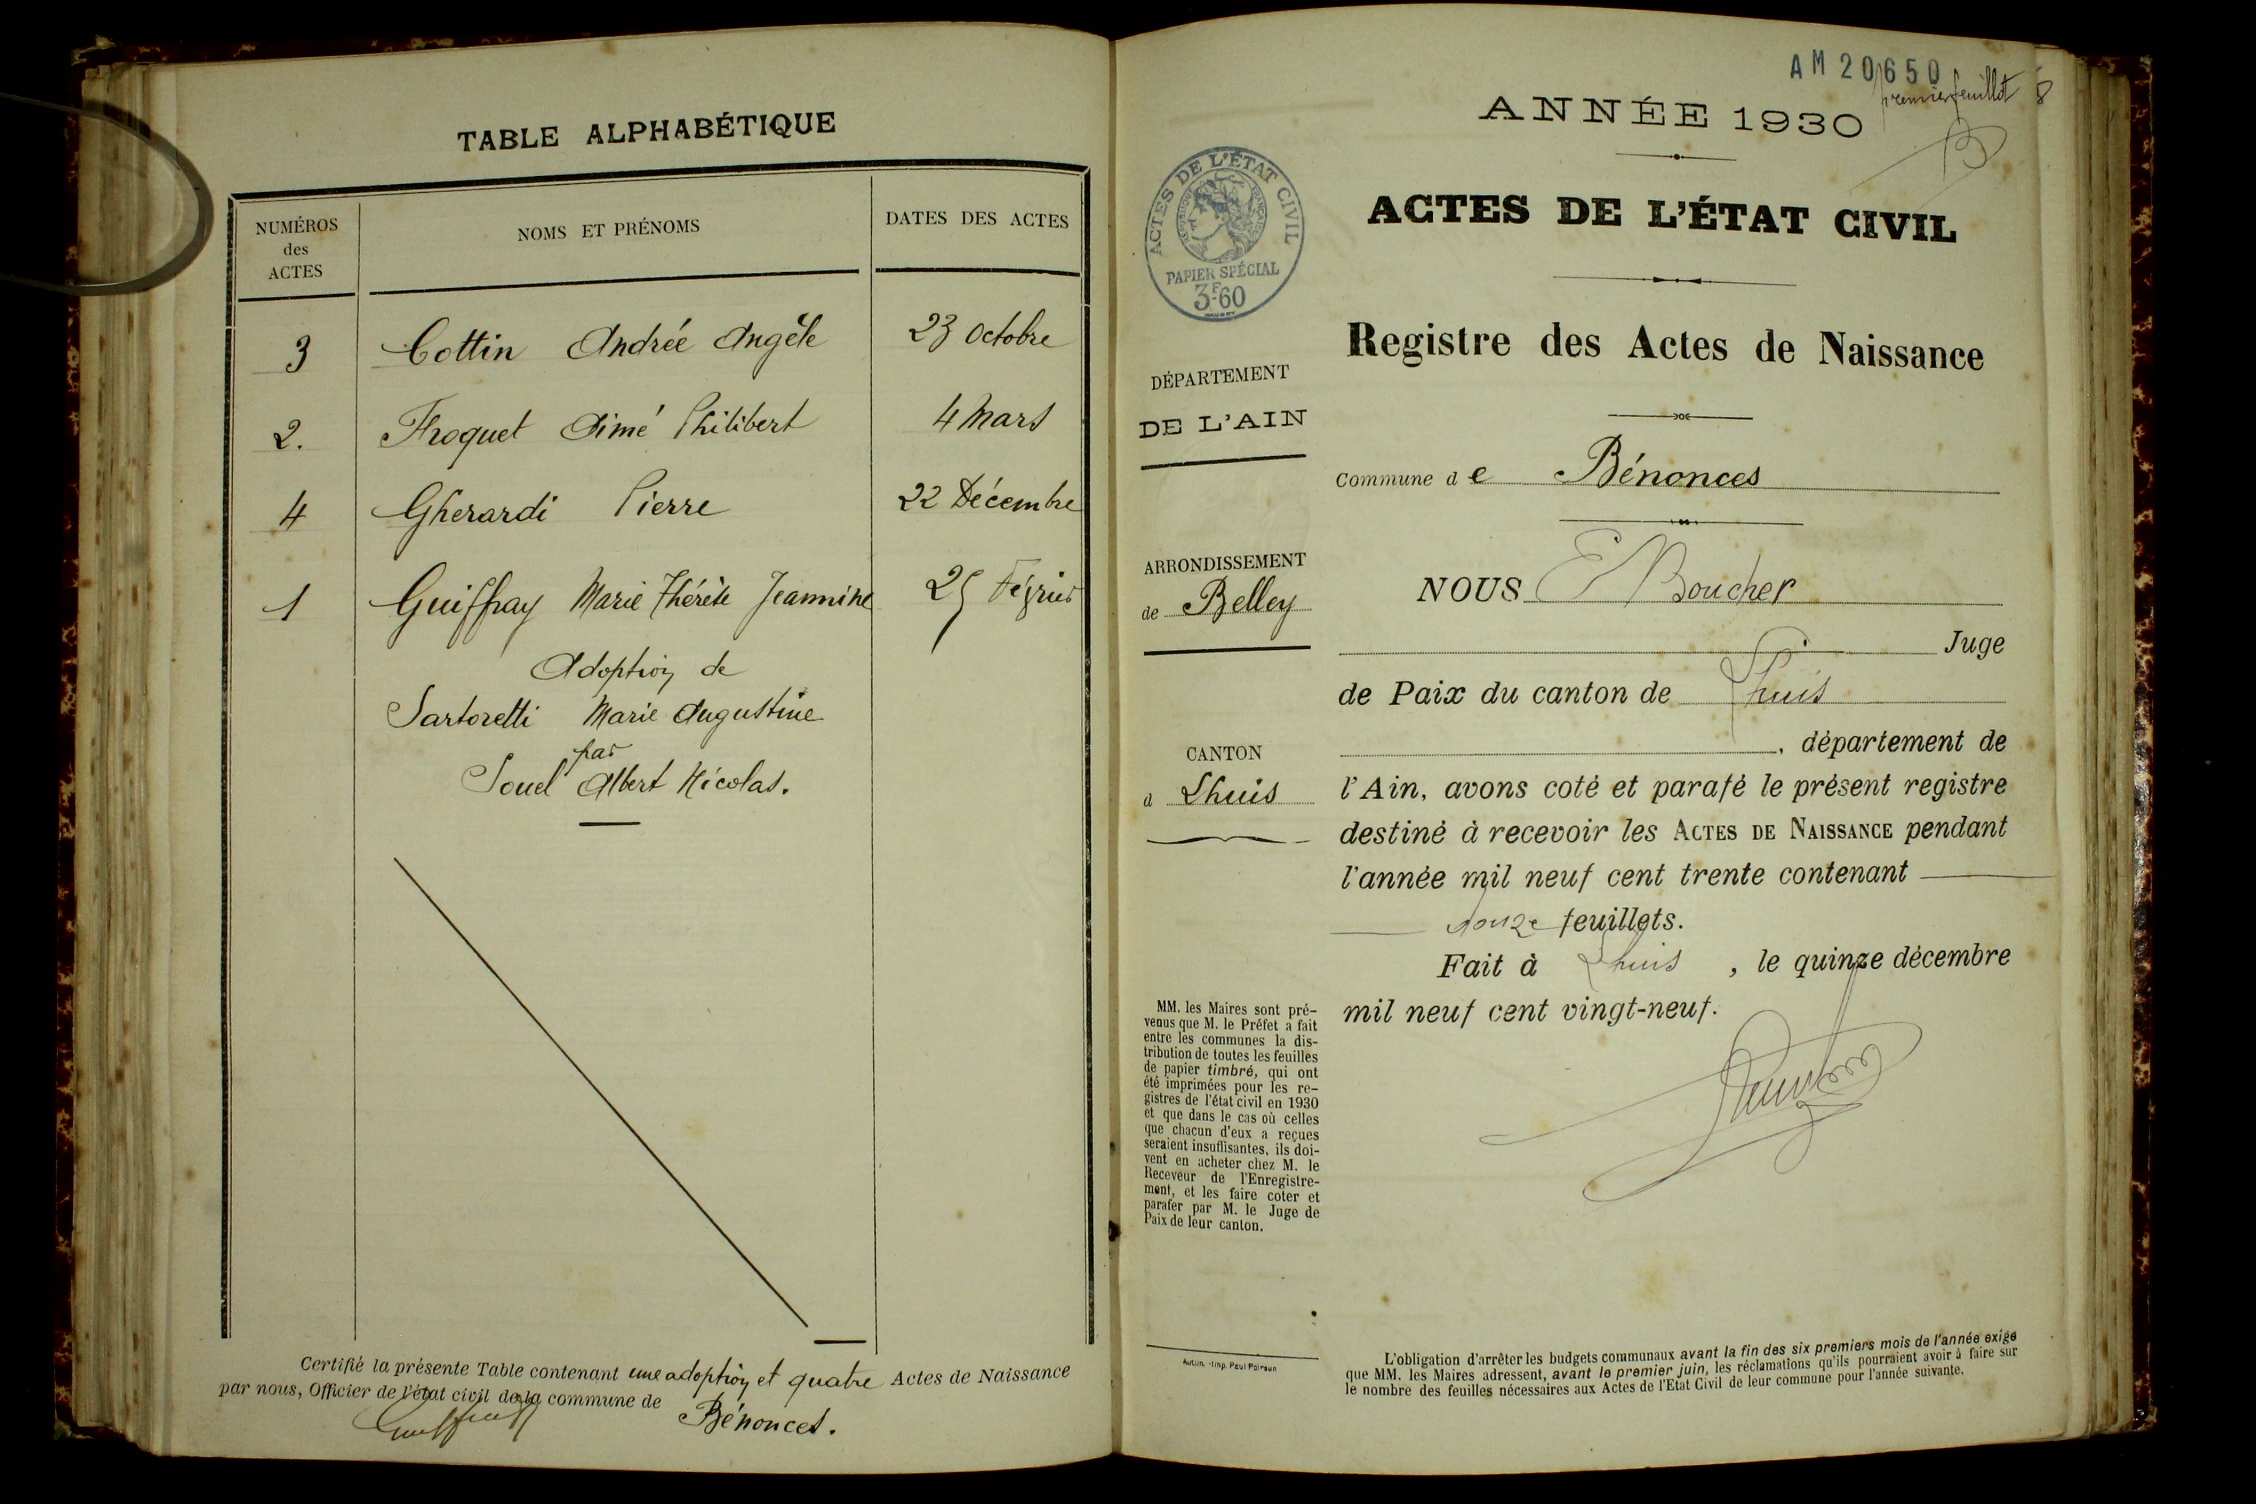 TABLE ALPHABÉTIQUE
NUMÉROS
des
ACTES
NOMS ET PRÉNOMS
DATES DES ACTES
3 Cottin Andrée Angèle 23 Octobre
2. Froquet Aimé Philibert 4 Mars
4 Gherardi Pierre 22 Décembre
1 Guiffray Marie Thérèse Jeannine 25 Février
Adoption de
Sartoretti Marie Augustine
par
Souel Albert Nicolas.
Certifié la présente Table contenant une adoption et quatre Actes de Naissance
par nous, Officier de l'état civil de la commune de
Bénonces.
AM 20650
premier feuillet
ANNÉE 1930
ACTES DE L'ÉTAT CIVIL
RÉPUBLIQUE FRANÇAISE
PAPIER SPÉCIAL
3F.60
ACTES DE L'ÉTAT CIVIL
Registre des Actes de Naissance
DÉPARTEMENT
DE L'AIN
Commune de Bénonces
ARRONDISSEMENT
de Belley
CANTON
d Lhuis
NOUS E Boucher
Juge
de Paix du canton de Lhuis
, département de
l'Ain, avons coté et parafé le présent registre
destiné à recevoir les ACTES DE NAISSANCE pendant
l'année mil neuf cent trente contenant
feuillets.
Fait à Lhuis, le quinze décembre
mil neuf cent vingt-neuf.
MM. les Maires sont pré-
venus que M. le Préfet a fait
entre les communes la dis-
tribution de toutes les feuilles
de papier timbré, qui ont
été imprimées pour les re-
gistres de l'état civil en 1930
et que dans le cas où celles
que chacun d'eux a reçues
seraient insuffisantes, ils doi-
vent en acheter chez M. le
Receveur de l'Enregistre-
ment, et les faire coter et
parafer par M. le Juge de
Paix de leur canton.
Autun. - Imp. Paul Poirson
L'obligation d'arrêter les budgets communaux avant la fin des six premiers mois de l'année exige
que MM. les Maires adressent, avant le premier juin, les réclamations qu'ils pourraient avoir à faire sur
le nombre des feuilles nécessaires aux Actes de l'Etat Civil de leur commune pour l'année suivante.